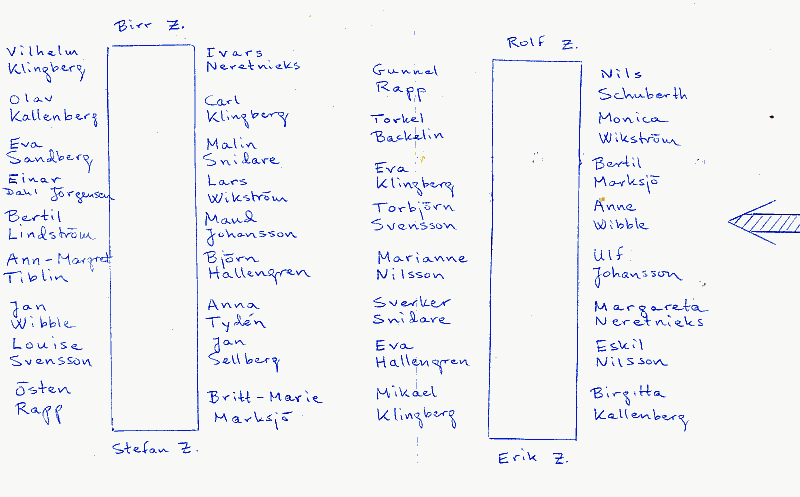 Birr Z.
Vilhelm
Klingberg
Olav
Kallenberg
Eva
Sandberg
Einar
Dahl Jörgensen
Bertil
Lindström
Ann-Margret
Tiblin
Jan
Wibble
Louise
Svensson
Östen
Rapp
Ivars
Neretnieks
Carl
Klingberg
Malin
Snidare
Lars
Wikström
Maud
Johansson
Björn
Hallengren
Anna
Tydén
Jan
Sellberg
Britt-Marie
Marksjö
Stefan Z.
Rolf Z.
Gunnel
Rapp
Torkel
Backelin
Eva
Klingberg
Torbjörn
Svensson
Marianne
Nilsson
Sverker
Snidare
Eva
Hallengren
Mikael
Klingberg
Nils
Schuberth
Monica
Wikström
Bertil
Marksjö
Anne
Wibble
Ulf
Johansson
Margareta
Neretnieks
Eskil
Nilsson
Birgitta
Kallenberg
Erik Z.